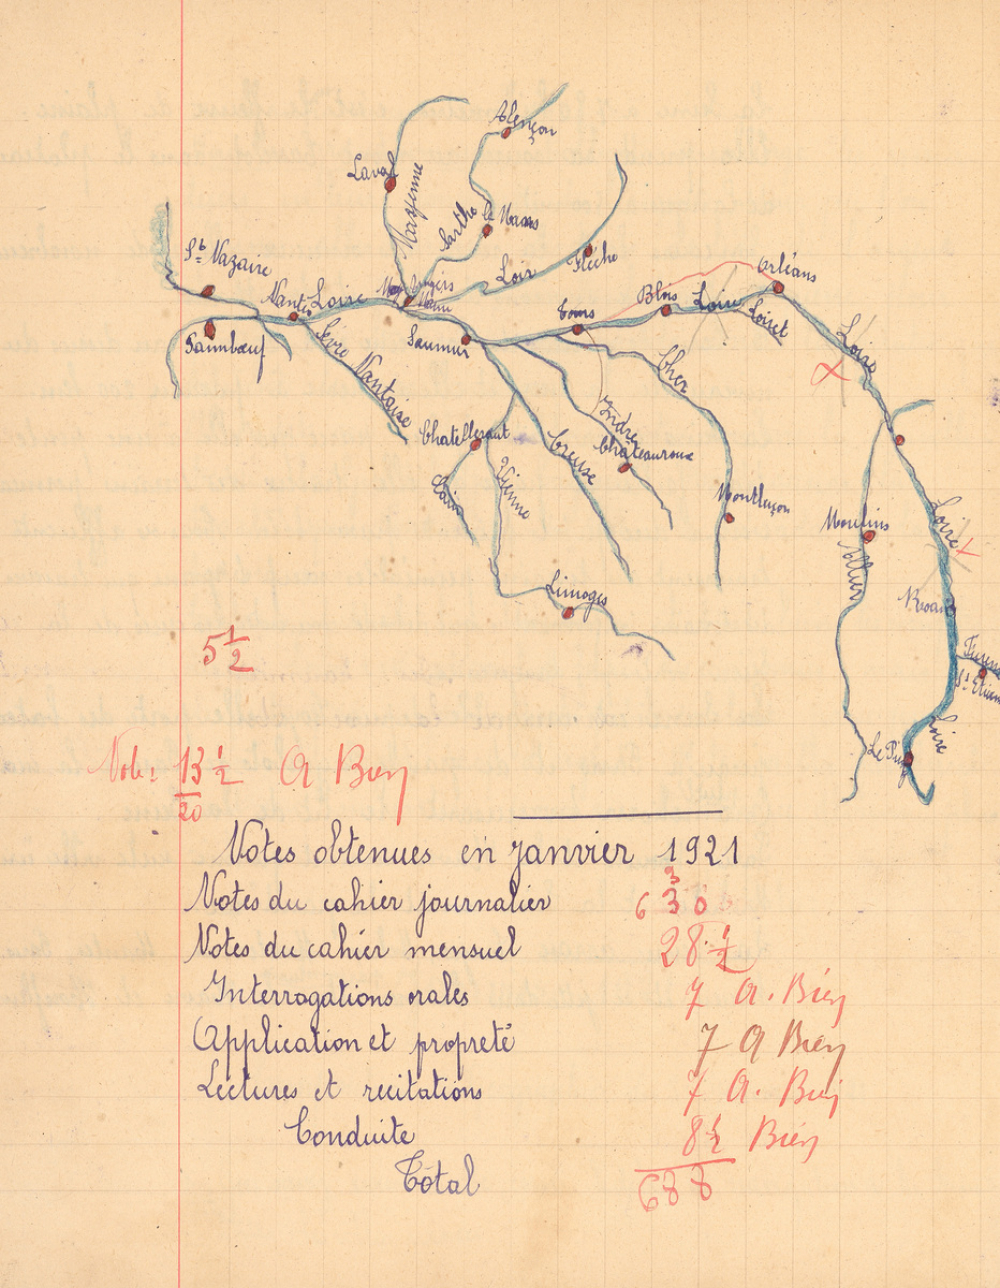 Alençon
Laval
Mayenne
Sarthe
le Mans
St Nazaire
Loir
Flèche
Orléans
Nantes
Loire
Angers
Maine
Blois
Loire
Loiret
Tours
Paimbœuf
Sèvre Nantaise
Saumur
Loire
Cher
Indre
Chatellerault
Châteauroux
Creuse
Clain
Vienne
Montluçon
Moulins
Loire
Allier
Limoges
Roan
Furens
St Etienne
Loire
Le Puy
5 1/2
Note: 13 1/2 A Bien
20
Notes obtenues en janvier 1921
Notes du cahier journalier 630
3
Notes du cahier mensuel 28 1/2
Interrogations orales 7 A. Bien
Application et propreté 7 A Bien
Lectures et récitations 7 A. Bien
Conduite 8 1/2 Bien
Total 688